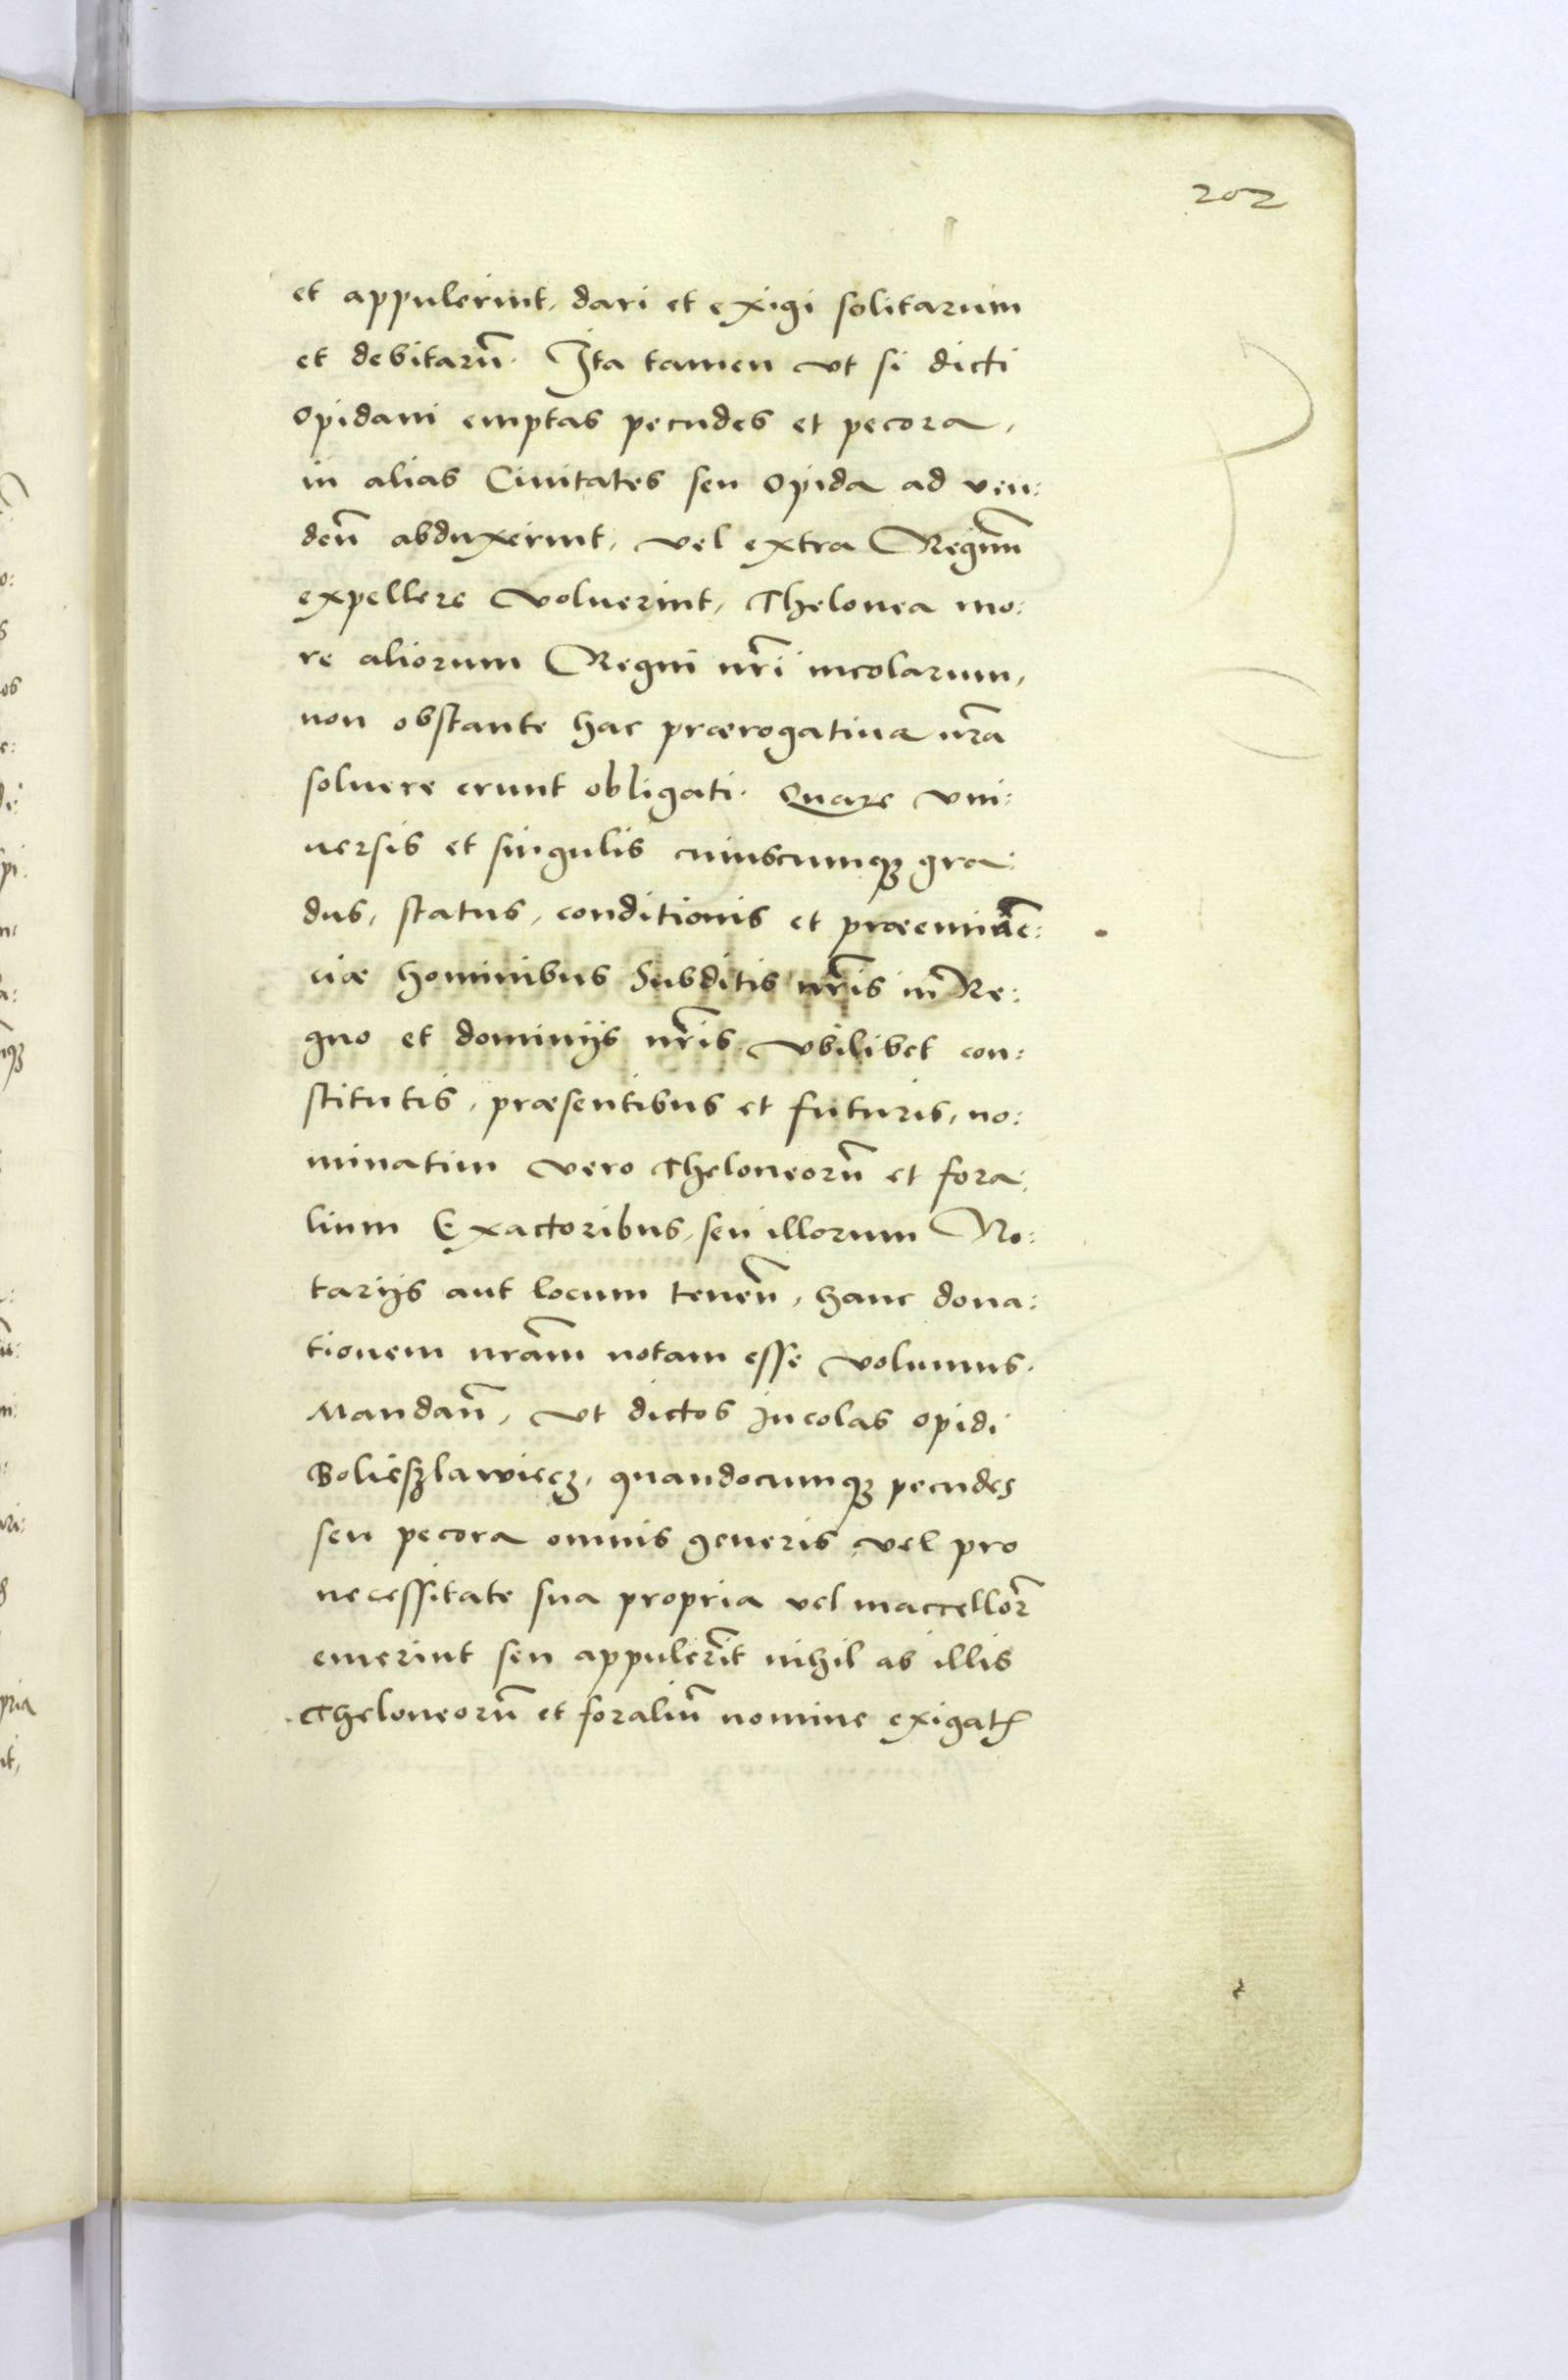 202
et appulerint, dari et exigi solitarum
et debitarũ. Ita tamen vt si dicti
opidani emptas pecudes et pecora,
in alias Ciuitates seu opida ad ven:
deñ abduxerint, vel extra Regnũ
expellere voluerint, Thelonea mo:
re aliorum Regni nr̃i incolarum,
non obstante hac prærogatiua nr̃a
soluere erunt obligati. Quare vni:
uersis et singulis cuiuscumqꝫ gra:
dus, status, conditionis et præeminẽ:
ciæ hominibus Subditis nr̃is in Re:
gno et dominijs nr̃is vbilibet con:
stitutis, præsentibus et futuris, no:
minatim vero Theloneorũ et fora:
lium Exactoribus, seu illorum No:
tarijs aut locum teneñ, hanc dona:
tionem nr̃am notam esse volumus.
Mandañ, vt dictos incolas opidi
Bolieszlawiecz, quandocumqꝫ pecudes
seu pecora omnis generis, vel pro
necessitate sua propria vel maccellor̃
emerint seu appulerĩt nihil ab illis
Theloneorũ et foraliũ nomine exigatꝭ